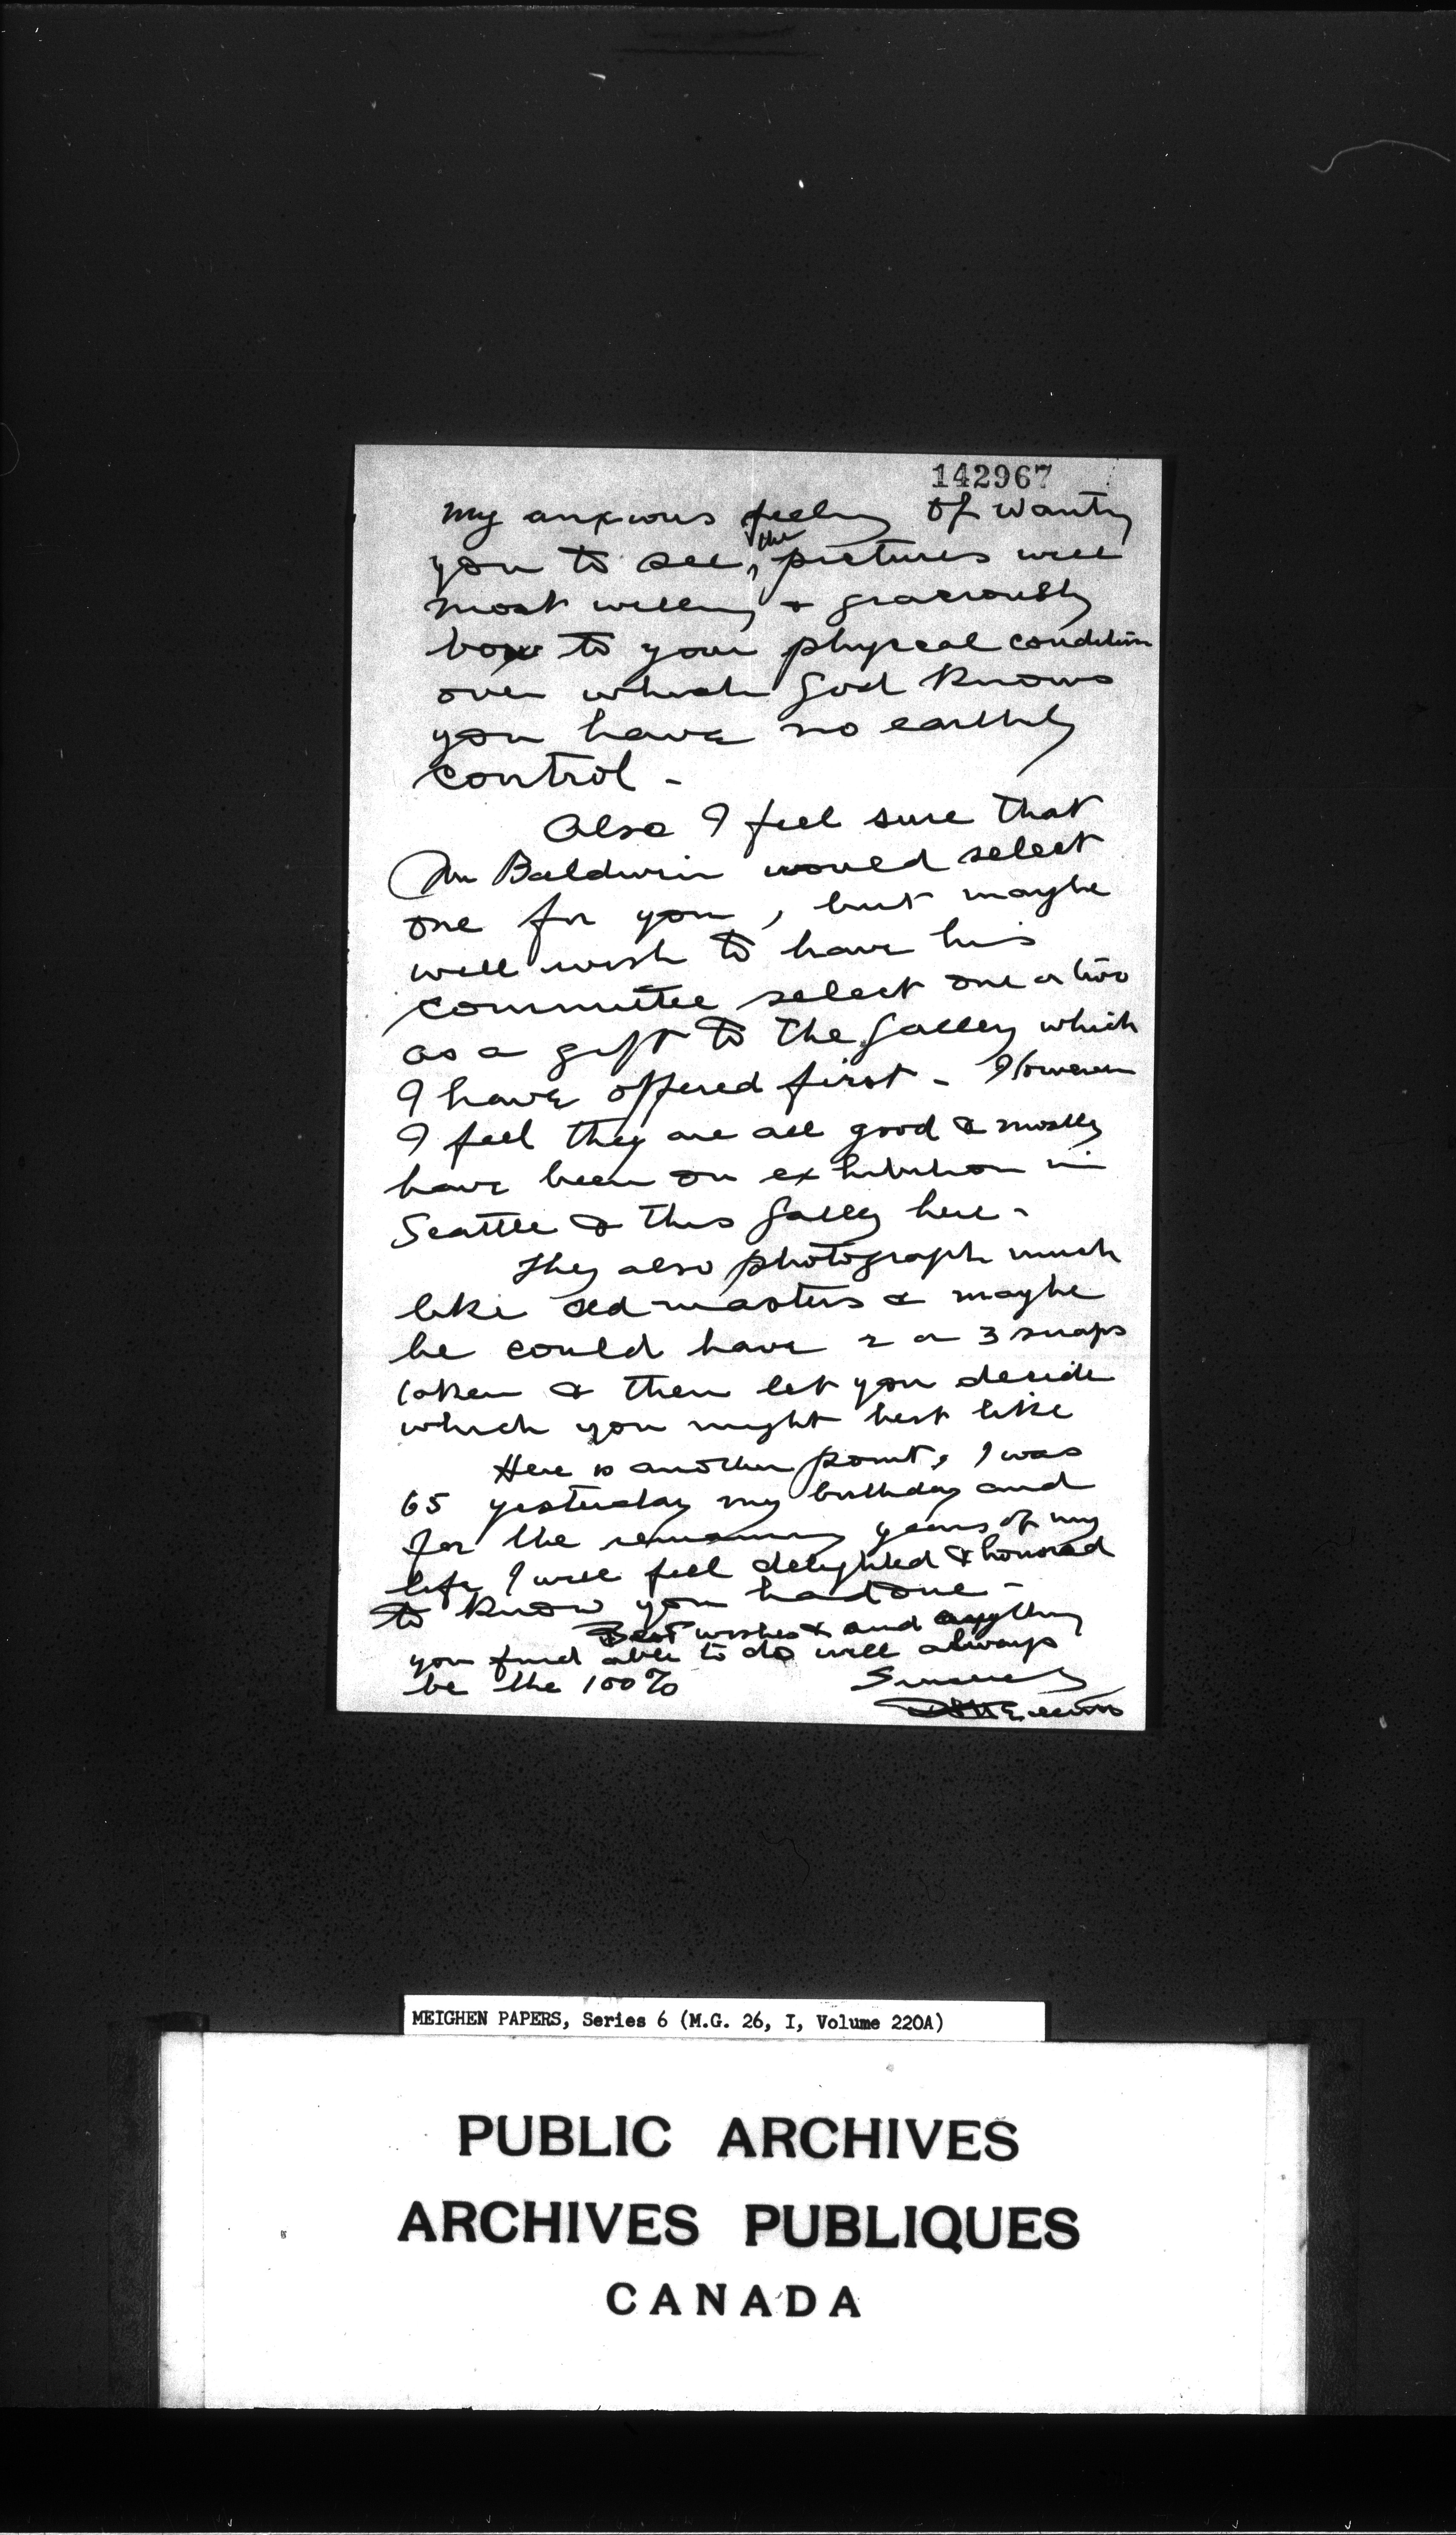 142967
my anxious feeling of wanting
the
you to see, pictures will
most willing & graciously
bow to your physical condition
over which God knows
you have no earthly
control -
Also I feel sure that
Mr Baldwin would select
one for you, but maybe
will wish to have his
committee select one or two
as a gift to the Gallery which
I have offered first - However
I feel they are all good & mostly
have been on exhibition in
Seattle & this Gallery here -
They also photograph much
like old masters & maybe
he could have 2 or 3 snaps
taken & then let you decide
which you might best like
Here is another point, I was
65 yesterday my birthday and
for the remaining years of my
life I will feel delighted & honored
to know you had one -
Best wishes & and anything
you find able to do will always
be the 100%
Sincerely
MEIGHEN PAPERS, Series 6 (M.G. 26, I, Volume 220A)
PUBLIC ARCHIVES
ARCHIVES PUBLIQUES
CANADA